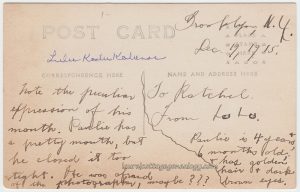 POST CARD
Brooklyn N.Y.
Dec. 19, 1915.
CORRESPONDENCE HERE
NAME AND ADDRESS HERE
Note the peculiar
expression of his
mouth. Paulie has
a pretty mouth, but
he closed it too
tight. He was afraid
of the photographer, maybe???
To Ratchel
From Lolo.
Paulie is 4 years
months old.
& has golden
hair & dark
brown eyes.